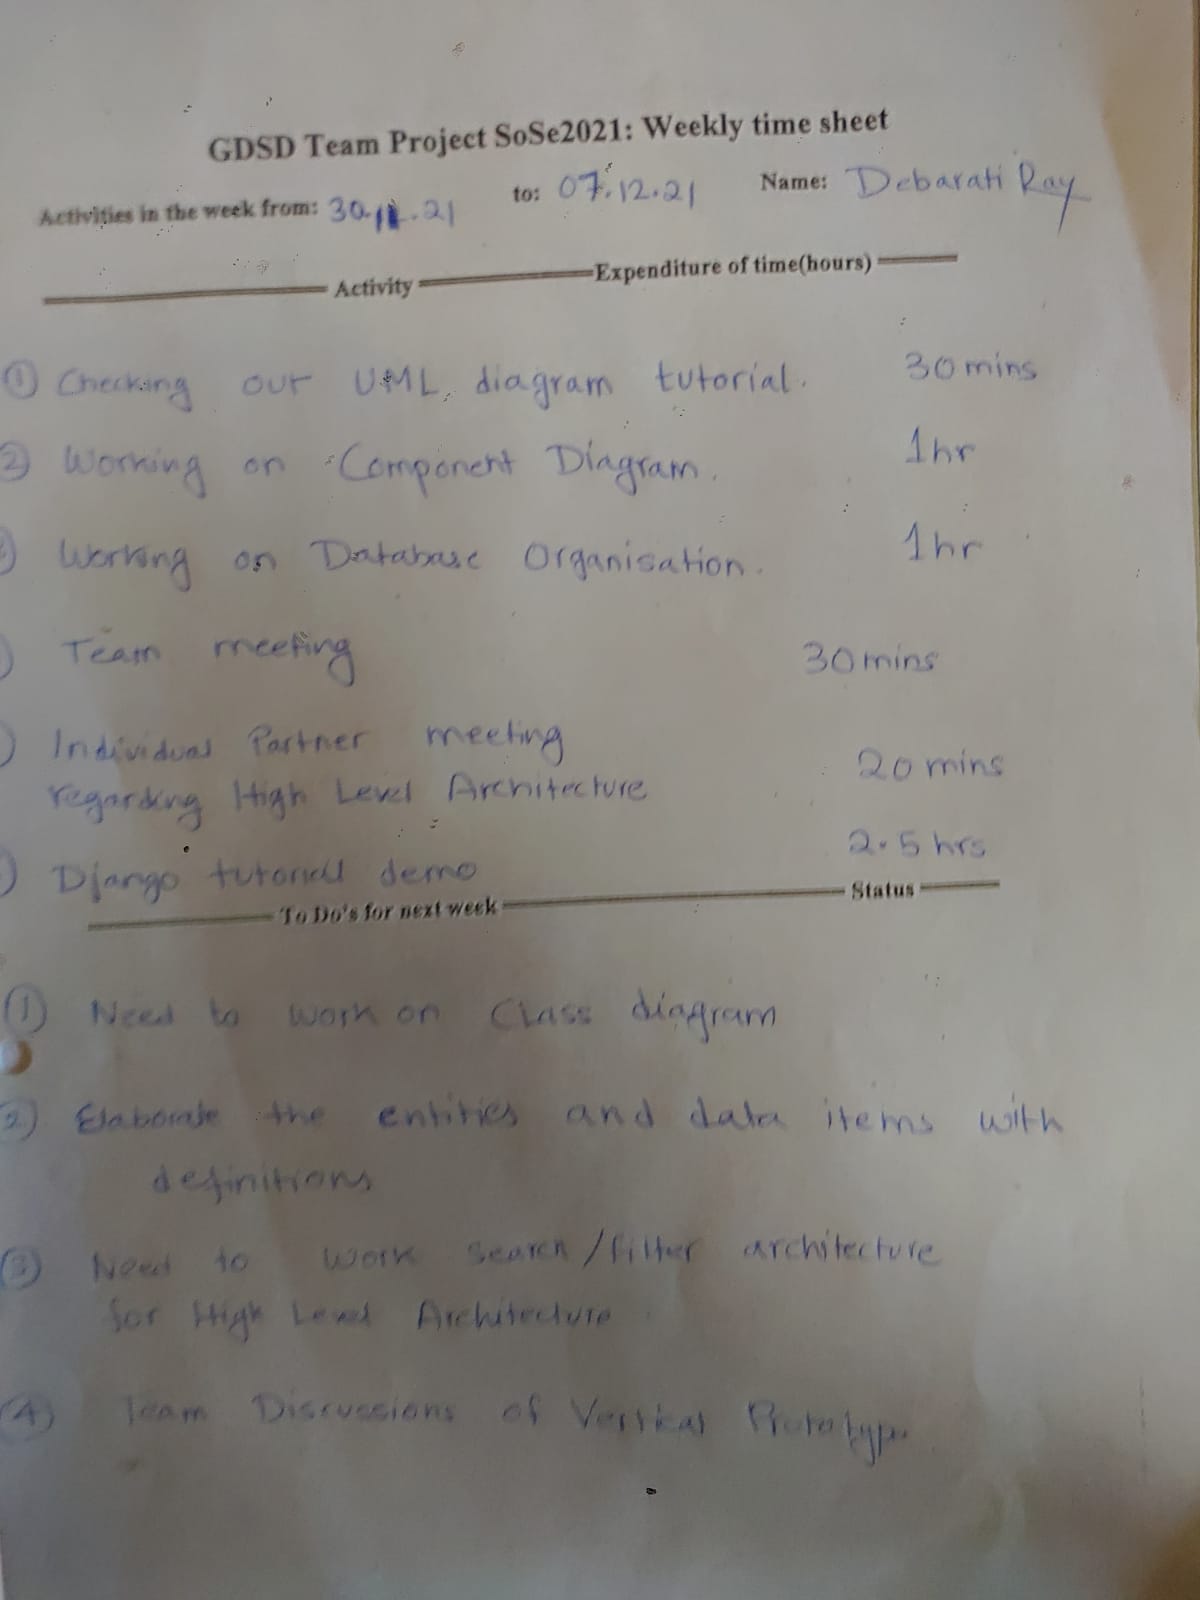 GDSD Team Project SoSe2021: Weekly time sheet
Activities in the week from: 30.11.21 to: 07.12.21 Name: Debarati Ray
Activity Expenditure of time(hours)
① Checking out UML diagram tutorial. 30 mins
2) Working on Component Diagram. 1hr
Working on Database Organisation. 1hr
Team meeting 30 mins
Individual Partner meeting
regarding High Level Architecture 20 mins
Django tutorial demo 2.5 hrs
To Do's for next week Status
① Need to work on Class diagram
2) Elaborate the entities and data items with
definitions
③ Need to work search/filter architecture
for High Level Architecture
④ Team Discussions of Vertical Prototype